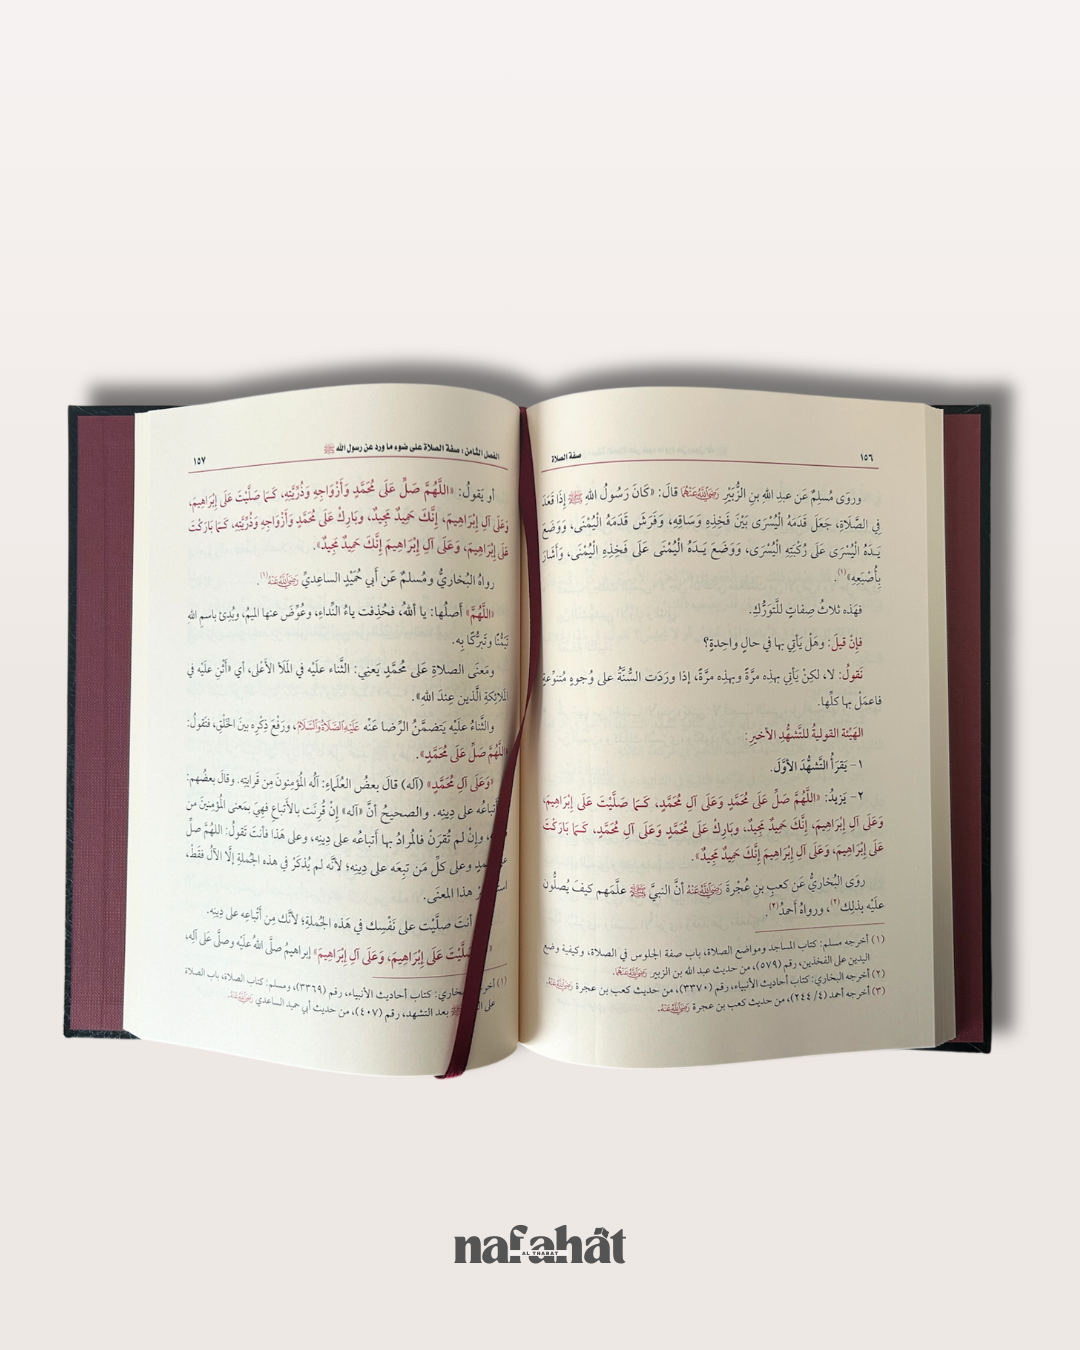 ١٥٦
صفة الصلاة
وروَى مُسلِمٌ عَن عبدِ اللهِ بنِ الزُّبَيْرِ رَضِيَ اللَّهُ عَنْهُمَا قالَ: «كَانَ رَسُولُ اللهِ ﷺ إِذَا قَعَدَ
فِي الصَّلَاةِ، جَعَلَ قَدَمَهُ الْيُسْرَى بَيْنَ فَخِذِهِ وَسَاقِهِ، وَفَرَشَ قَدَمَهُ الْيُمْنَى، وَوَضَعَ
يَـدَهُ الْيُسْرَى عَلَى رُكْبَتِهِ الْيُسْرَى، وَوَضَعَ يَـدَهُ الْيُمْنَى عَلَى فَخِذِهِ الْيُمْنَى، وَأَشَارَ
بِأُصْبَعِهِ»(١).
فهَذه ثلاثُ صِفاتٍ للتَّورُّكِ.
فإِنْ قيلَ: وهَلْ يَأتِي بها في حالٍ واحِدةٍ؟
نَقولُ: لا، لكِنْ يَأتِي بهذِه مرَّةً وبهذِه مرَّةً، إذا ورَدَت السُّنَّةُ على وُجوهٍ مُتنوِّعةٍ
فاعمَلْ بها كلِّها.
الهَيْئة القوليةُ للتَّشهُّدِ الأخيرِ:
١- يَقرَأُ التَّشهُّدَ الأوَّلَ.
٢- يَزيدُ: «اللَّهُمَّ صَلِّ عَلَى مُحَمَّدٍ وَعَلَى آلِ مُحَمَّدٍ، كَمَا صَلَّيْتَ عَلَى إِبْرَاهِيمَ،
وَعَلَى آلِ إِبْرَاهِيمَ، إِنَّكَ حَمِيدٌ مَجِيدٌ، وبَارِكْ عَلَى مُحَمَّدٍ وَعَلَى آلِ مُحَمَّدٍ، كَـمَا بَارَكْتَ
عَلَى إِبْرَاهِيمَ، وَعَلَى آلِ إِبْرَاهِيمَ إِنَّكَ حَمِيدٌ مَجِيدٌ».
روَى البُخاريُّ عَن كعبِ بنِ عُجْرةَ رَضِيَ اللَّهُ عَنْهُ أنَّ النبيَّ ﷺ علَّمَهم كيفَ يُصلُّون
علَيْه بذلِك(٢)، ورواهُ أَحمدُ(٣).
(١) أخرجه مسلم: كتاب المساجد ومواضع الصلاة، باب صفة الجلوس في الصلاة، وكيفية وضع
اليدين على الفخذين، رقم (٥٧٩)، من حديث عبد الله بن الزبير رَضِيَ اللَّهُ عَنْهُمَا.
(٢) أخرجه البخاري: كتاب أحاديث الأنبياء، رقم (٣٣٧٠)، من حديث كعب بن عجرة رَضِيَ اللَّهُ عَنْهُ.
(٣) أخرجه أحمد (٤/ ٢٤٤)، من حديث كعب بن عجرة رَضِيَ اللَّهُ عَنْهُ.
الفصل الثامن: صفة الصلاة على ضوء ما ورد عن رسول الله ﷺ
١٥٧
أو يَقولُ: «اللَّهُمَّ صَلِّ عَلَى مُحَمَّدٍ وَأَزْوَاجِهِ وَذُرِّيَّتِهِ، كَمَا صَلَّيْتَ عَلَى إِبْرَاهِيمَ،
وَعَلَى آلِ إِبْرَاهِيمَ، إِنَّكَ حَمِيدٌ مَجِيدٌ، وبَارِكْ عَلَى مُحَمَّدٍ وَأَزْوَاجِهِ وَذُرِّيَّتِهِ، كَـمَا بَارَكْتَ
عَلَى إِبْرَاهِيمَ، وَعَلَى آلِ إِبْرَاهِيمَ إِنَّكَ حَمِيدٌ مَجِيدٌ».
رواهُ البُخاريُّ ومُسلمٌ عَن أَبي حُمَيْدٍ الساعِديِّ رَضِيَ اللَّهُ عَنْهُ(١).
«اللَّهُمَّ» أَصلُها: يا أللهُ، فحُذِفت ياءُ النِّداءِ، وعُوِّضَ عنها الميمُ، وبُدِئَ باسمِ اللهِ
تَيَمُّنًا وتَبرُّكًا بِه.
ومَعنَى الصلاةِ عَلى مُحمَّدٍ يَعنِي: الثَّناء علَيْه في المَلَأ الأَعْلى، أي «أَثْنِ علَيْه في
المَلائِكةِ الَّذين عِندَ اللهِ».
والثَّناءُ علَيْه يَتضمَّنُ الرِّضا عَنْه عَلَيْهِ الصَّلَاةُ وَالسَّلَامُ، ورَفْعَ ذِكْرِه بينَ الخَلْقِ، فتَقولُ:
«اللَّهُمَّ صَلِّ عَلَى مُحَمَّدٍ».
«وَعَلَى آلِ مُحَمَّدٍ» (آله) قالَ بعضُ العُلَماءِ: آلُه المُؤمِنونَ مِن قَرابتِه. وقالَ بعضُهم:
أَتباعُه على دِينِه. والصحيحُ أنَّ «آله» إِنْ قُرِنَت بالأَتباعِ فهِيَ بمَعنَى المُؤمِنينَ مِن
وإنْ لم تُقرَنْ فالمُرادُ بها أَتباعُه على دِينِه، وعلى هَذا فأنتَ تَقولُ: اللهُمَّ صلِّ
وعلى كلِّ مَن تبِعَه على دِينِه؛ لأنَّه لم يُذكَرْ في هذه الجُملةِ إلَّا الآلُ فقَطْ،
هذا المعنَى.
أنتَ صلَّيْت على نَفْسِك في هَذه الجُملةِ؛ لأنَّكَ مِن أَتْباعِه على دِينِه.
صَلَّيْتَ عَلَى إِبْرَاهِيمَ، وَعَلَى آلِ إِبْرَاهِيمَ» إبراهيمُ صلَّى اللهُ علَيْه وصلَّى عَلى آلِه،
(١) البخاري: كتاب أحاديث الأنبياء، رقم (٣٣٦٩)، ومسلم: كتاب الصلاة، باب الصلاة
على ﷺ بعد التشهد، رقم (٤٠٧)، من حديث أبي حميد الساعدي رَضِيَ اللَّهُ عَنْهُ.
nafahât
AL THABAT